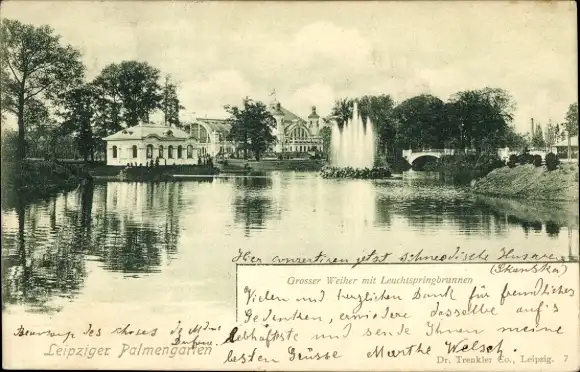 Hier conzertiren jetzt schwedische Husaren
(Skånska)
Grosser Weiher mit Leuchtspringbrunnen
Vielen und herzlichen Dank für freundliches
Gedenken, erwidere dasselbe auf's
Lebhafteste und sende Ihnen meine
besten Grüsse Marthe Welsch.
des choses de Mme
Leipziger Palmengarten
Dr. Trenkler Co., Leipzig. 7